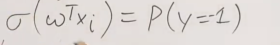 σ(ωᵀxᵢ) = P(y=-1)